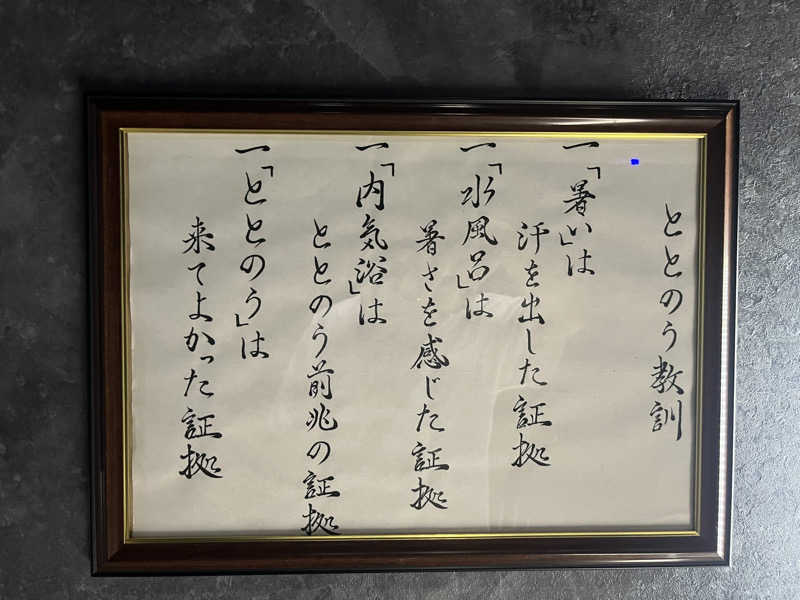 ととのう教訓
一「暑い」は
汗を出した証拠
一「水風呂」は
暑さを感じた証拠
一「内気浴」は
ととのう前兆の証拠
一「ととのう」は
来てよかった証拠